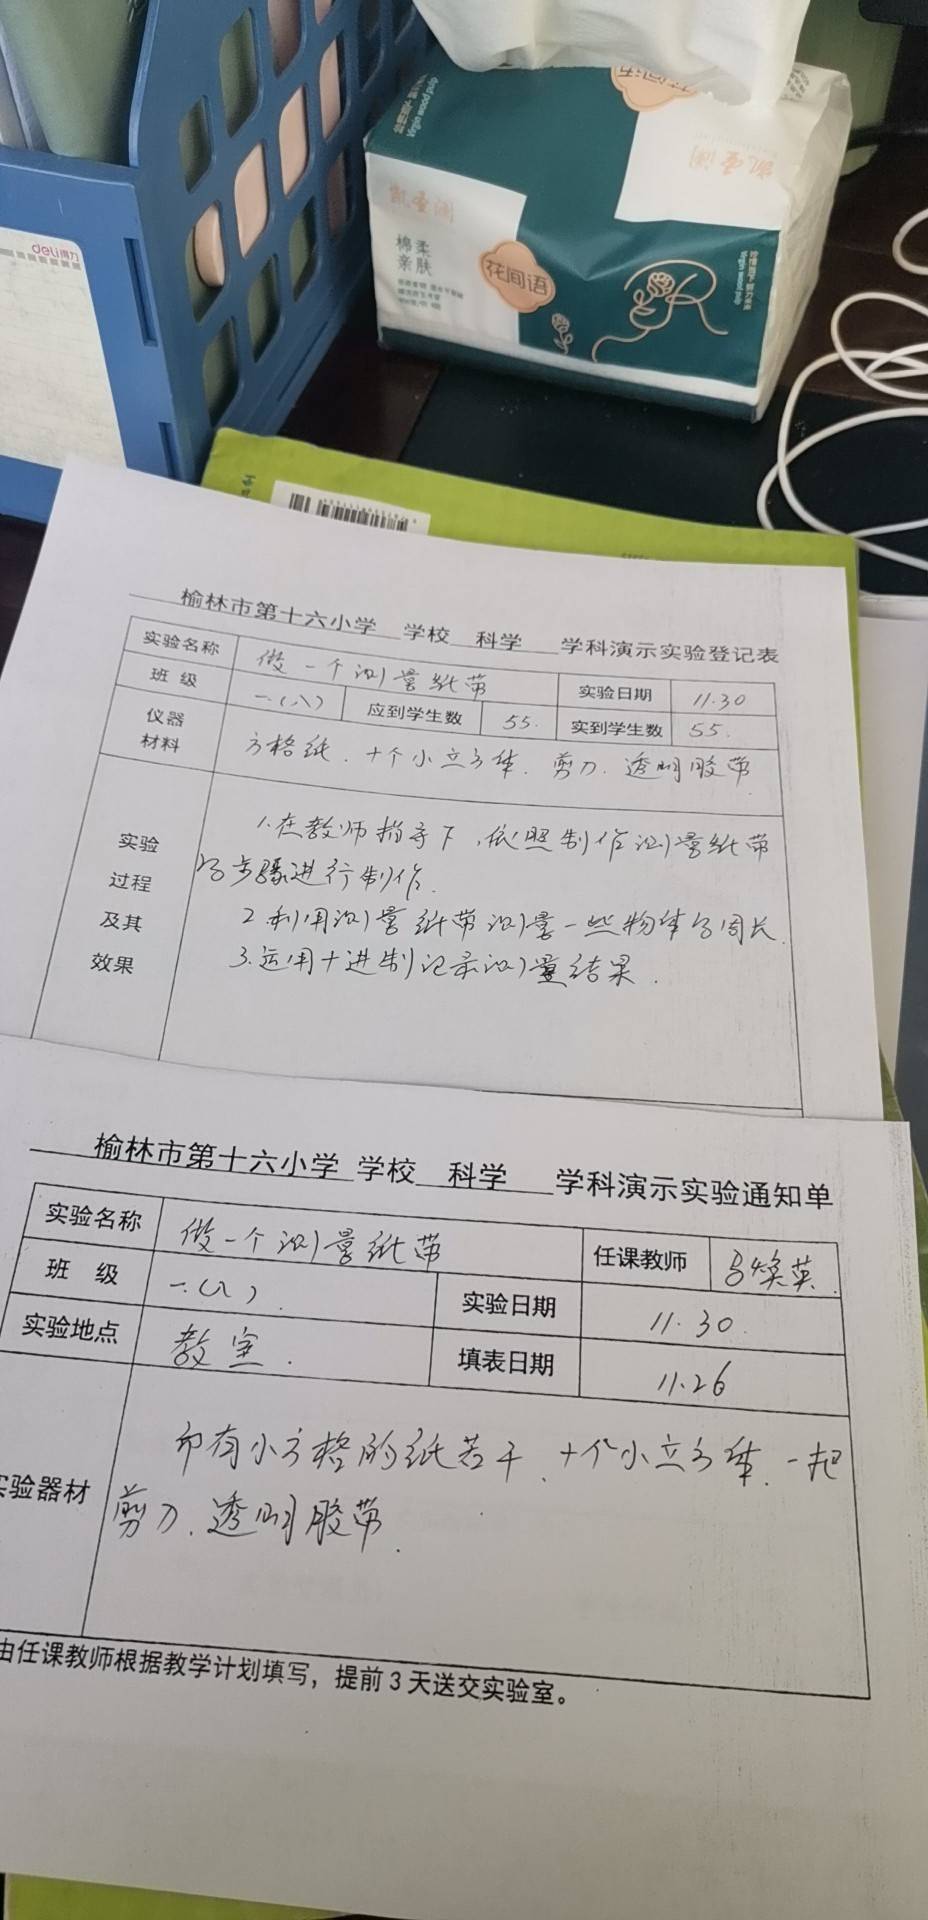 deli得力
Virgin wood pulp
花间语
凯圣润
凯圣润
棉柔
亲肤
花间语
榆林市第十六小学 学校 科学 学科演示实验登记表
实验名称 做一个测量纸带 实验日期 11.30
班 级 一.(八) 应到学生数 55. 实到学生数 55.
仪器
材料 方格纸.十个小立方体.剪刀.透明胶带
实验
过程
及其
效果
1.在教师指导下,依照制作测量纸带
的步骤进行制作.
2.利用测量纸带测量一些物体的周长.
3.运用十进制记录测量结果.
榆林市第十六小学 学校 科学 学科演示实验通知单
实验名称 做一个测量纸带 任课教师 焕英
班 级 一.(八). 实验日期 11.30.
实验地点 教室. 填表日期 11.26
实验器材 印有小方格的纸若干、十个小立方体.一把
剪刀.透明胶带.
由任课教师根据教学计划填写，提前 3 天送交实验室。